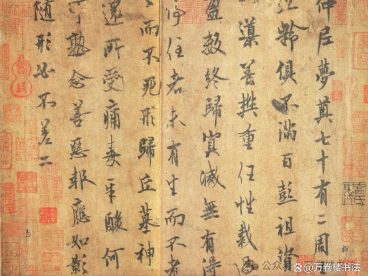 仲尼夢奠七十有二周
齡俱不滿百彭祖資
導養樊重任性裁過
盈數終歸冥滅無有得
停住者未有生而不老
而不死形歸丘墓神
還所受痛毒辛酸何
可熟念善惡報應如影
隨形必不差二
公众
万卷楼书法